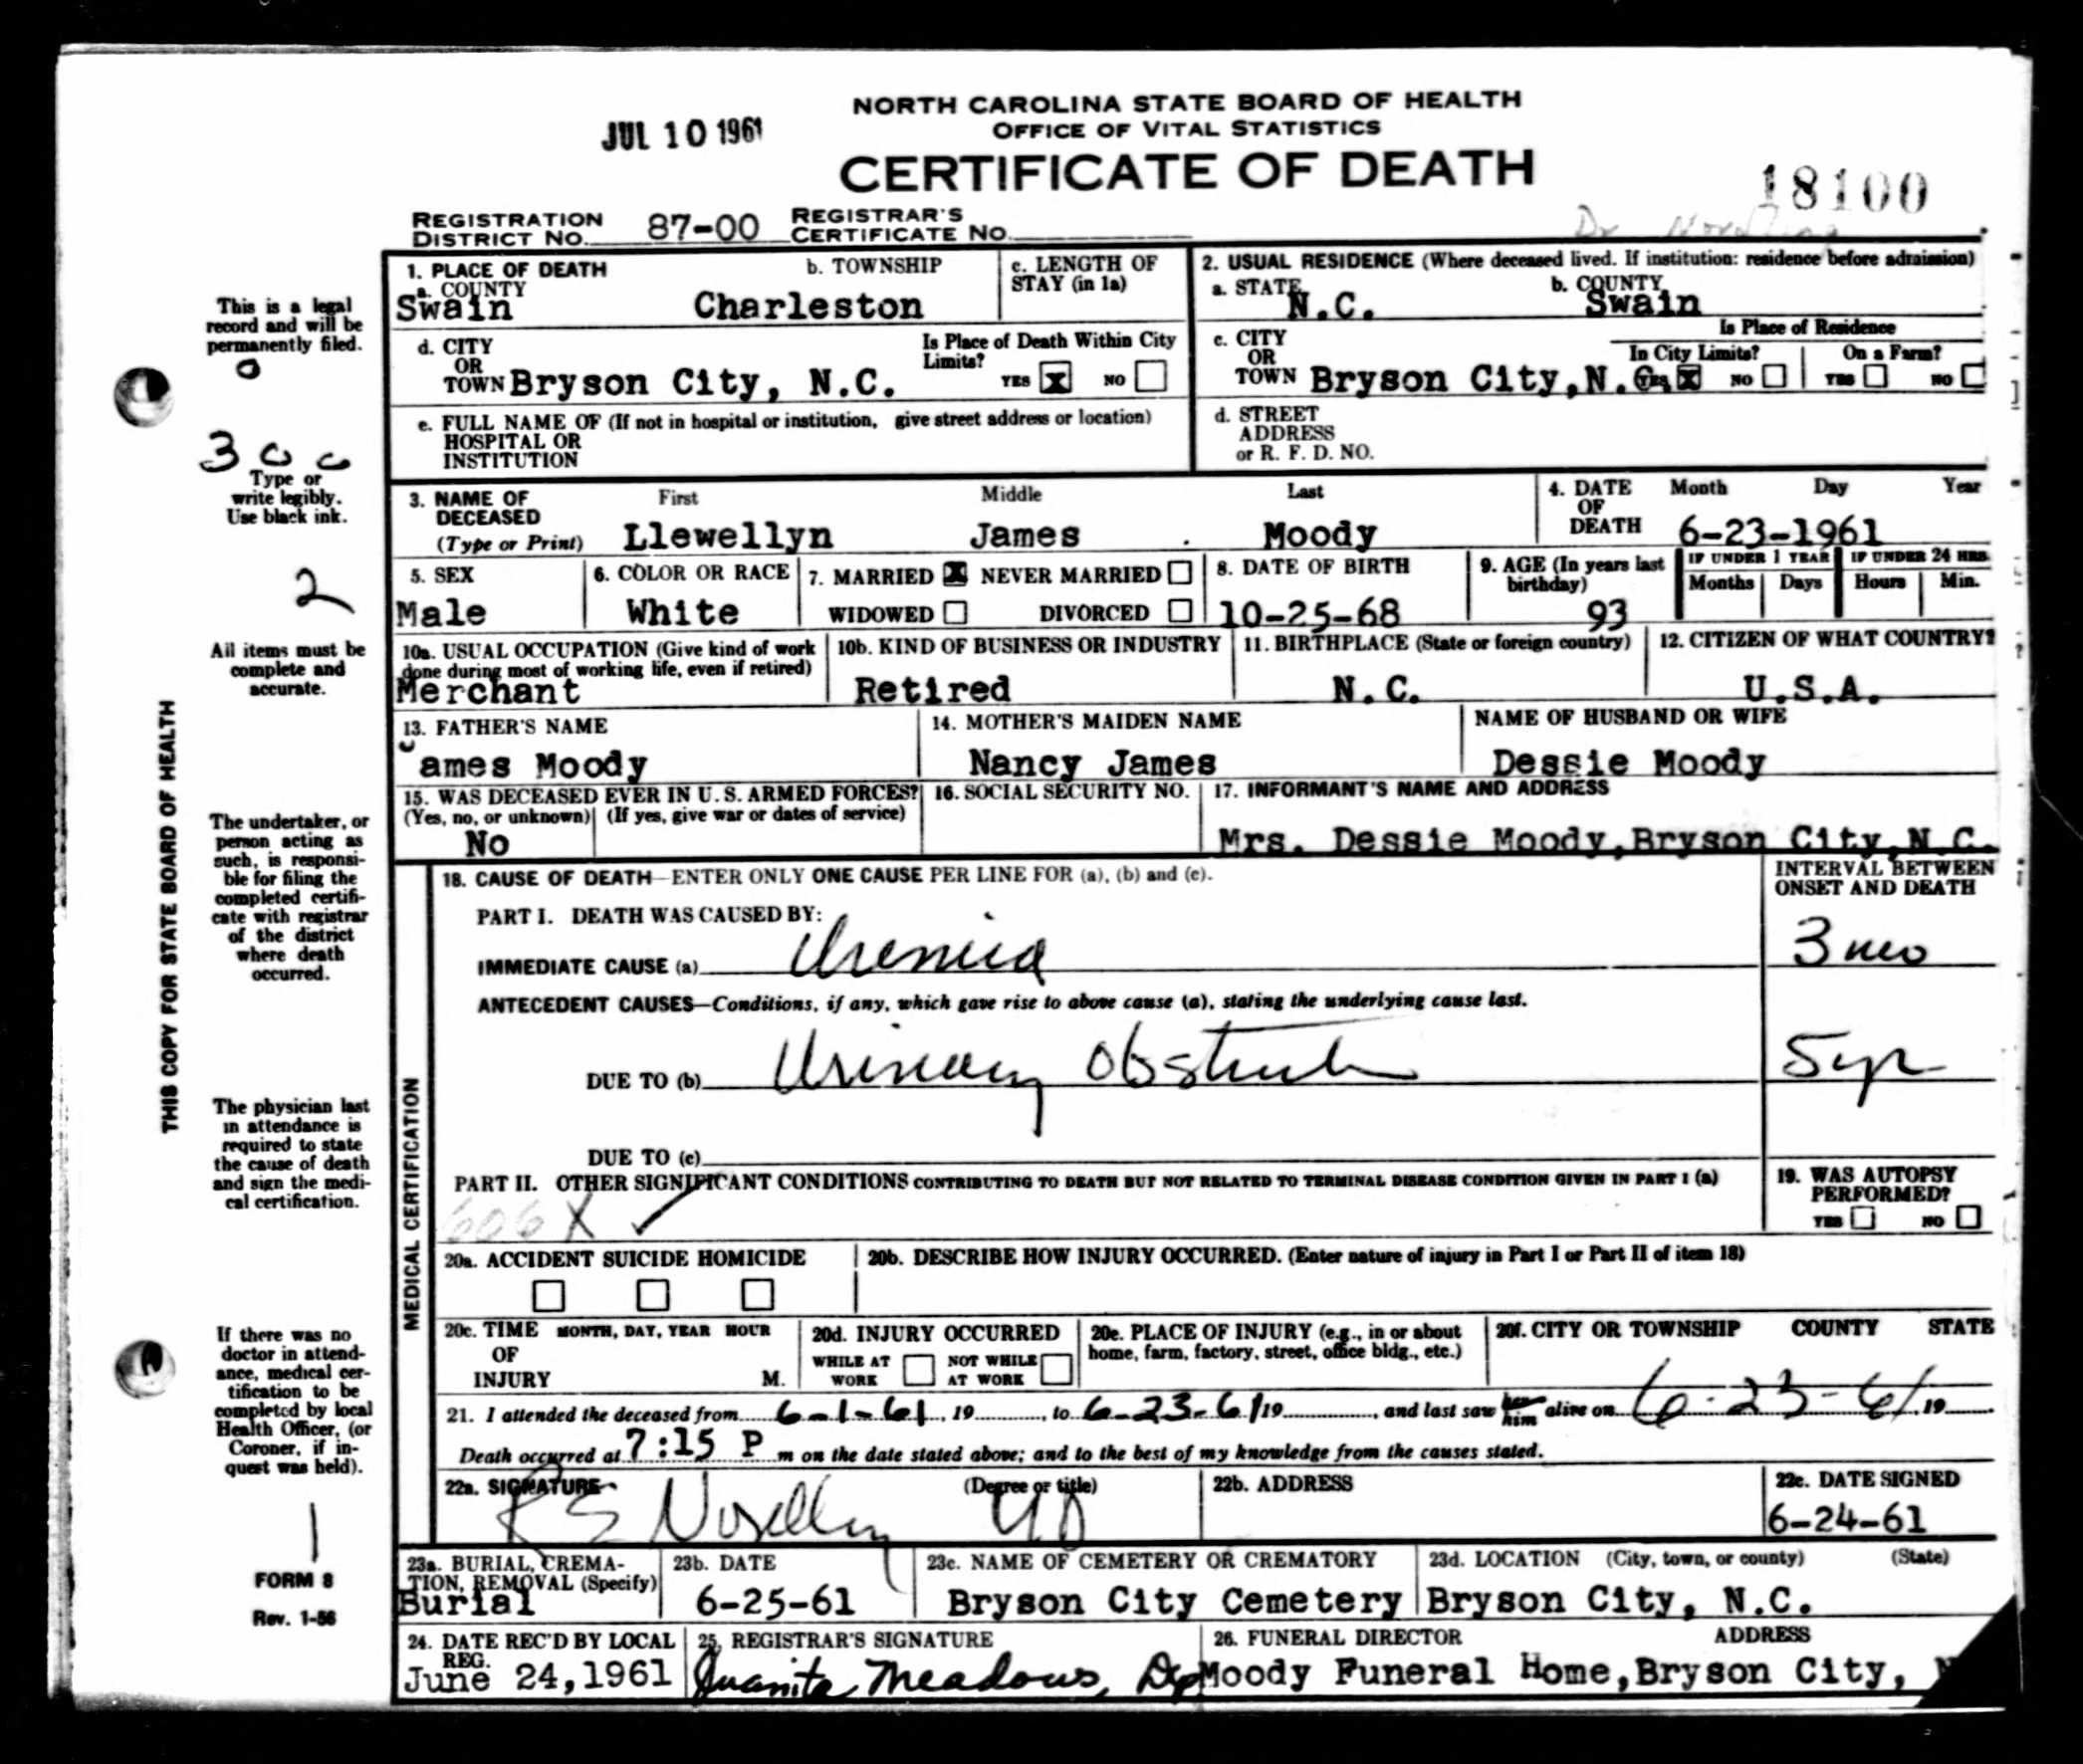 JUL 10 1961
NORTH CAROLINA STATE BOARD OF HEALTH
OFFICE OF VITAL STATISTICS
CERTIFICATE OF DEATH
18100
REGISTRATION DISTRICT NO. 87-00 REGISTRAR'S CERTIFICATE NO.
Dr
This is a legal record and will be permanently filed.
0
300
Type or write legibly. Use black ink.
2
All items must be complete and accurate.
The undertaker, or person acting as such, is responsible for filing the completed certificate with registrar of the district where death occurred.
The physician last in attendance is required to state the cause of death and sign the medical certification.
If there was no doctor in attendance, medical certification to be completed by local Health Officer, (or Coroner, if inquest was held).
1
FORM 8
Rev. 1-56
THIS COPY FOR STATE BOARD OF HEALTH
1. PLACE OF DEATH
a. COUNTY Swain
b. TOWNSHIP Charleston
c. LENGTH OF STAY (in 1a)
2. USUAL RESIDENCE (Where deceased lived. If institution: residence before admission)
a. STATE N.C.
b. COUNTY Swain
d. CITY OR TOWN Bryson City, N.C.
Is Place of Death Within City Limits? YES X NO
c. CITY OR TOWN Bryson City,N.C.
Is Place of Residence
In City Limits? YES X NO
On a Farm? YES NO
e. FULL NAME OF (If not in hospital or institution, give street address or location) HOSPITAL OR INSTITUTION
d. STREET ADDRESS or R. F. D. NO.
3. NAME OF DECEASED (Type or Print)
First Llewellyn Middle James Last Moody
4. DATE OF DEATH Month Day Year 6-23-1961
5. SEX Male
6. COLOR OR RACE White
7. MARRIED X NEVER MARRIED
WIDOWED DIVORCED
8. DATE OF BIRTH 10-25-68
9. AGE (In years last birthday) 93
IF UNDER 1 YEAR Months Days
IF UNDER 24 HRS. Hours Min.
10a. USUAL OCCUPATION (Give kind of work done during most of working life, even if retired) Merchant
10b. KIND OF BUSINESS OR INDUSTRY Retired
11. BIRTHPLACE (State or foreign country) N.C.
12. CITIZEN OF WHAT COUNTRY? U.S.A.
13. FATHER'S NAME James Moody
14. MOTHER'S MAIDEN NAME Nancy James
NAME OF HUSBAND OR WIFE Dessie Moody
15. WAS DECEASED EVER IN U. S. ARMED FORCES? (Yes, no, or unknown) (If yes, give war or dates of service) No
16. SOCIAL SECURITY NO.
17. INFORMANT'S NAME AND ADDRESS Mrs. Dessie Moody,Bryson City,N.C.
MEDICAL CERTIFICATION
18. CAUSE OF DEATH—ENTER ONLY ONE CAUSE PER LINE FOR (a), (b) and (c).
INTERVAL BETWEEN ONSET AND DEATH
PART I. DEATH WAS CAUSED BY:
IMMEDIATE CAUSE (a) Uremia 3 mo
ANTECEDENT CAUSES—Conditions, if any, which gave rise to above cause (a), stating the underlying cause last.
DUE TO (b) Urinary Obstruct 5 yr
DUE TO (c)
PART II. OTHER SIGNIFICANT CONDITIONS CONTRIBUTING TO DEATH BUT NOT RELATED TO TERMINAL DISEASE CONDITION GIVEN IN PART I (a)
606 X ✓
19. WAS AUTOPSY PERFORMED? YES NO
20a. ACCIDENT SUICIDE HOMICIDE
20b. DESCRIBE HOW INJURY OCCURRED. (Enter nature of injury in Part I or Part II of item 18)
20c. TIME OF INJURY MONTH, DAY, YEAR HOUR M.
20d. INJURY OCCURRED WHILE AT WORK NOT WHILE AT WORK
20e. PLACE OF INJURY (e.g., in or about home, farm, factory, street, office bldg., etc.)
20f. CITY OR TOWNSHIP COUNTY STATE
21. I attended the deceased from 6-1-61, 19, to 6-23-61 19, and last saw her him alive on 6-23-61, 19
Death occurred at 7:15 P m on the date stated above; and to the best of my knowledge from the causes stated.
22a. SIGNATURE (Degree or title) MD
22b. ADDRESS
22c. DATE SIGNED 6-24-61
23a. BURIAL, CREMATION, REMOVAL (Specify) Burial
23b. DATE 6-25-61
23c. NAME OF CEMETERY OR CREMATORY Bryson City Cemetery
23d. LOCATION (City, town, or county) (State) Bryson City, N.C.
24. DATE REC'D BY LOCAL REG. June 24,1961
25. REGISTRAR'S SIGNATURE Juanita Meadows, Dep
26. FUNERAL DIRECTOR ADDRESS Moody Funeral Home,Bryson City, N